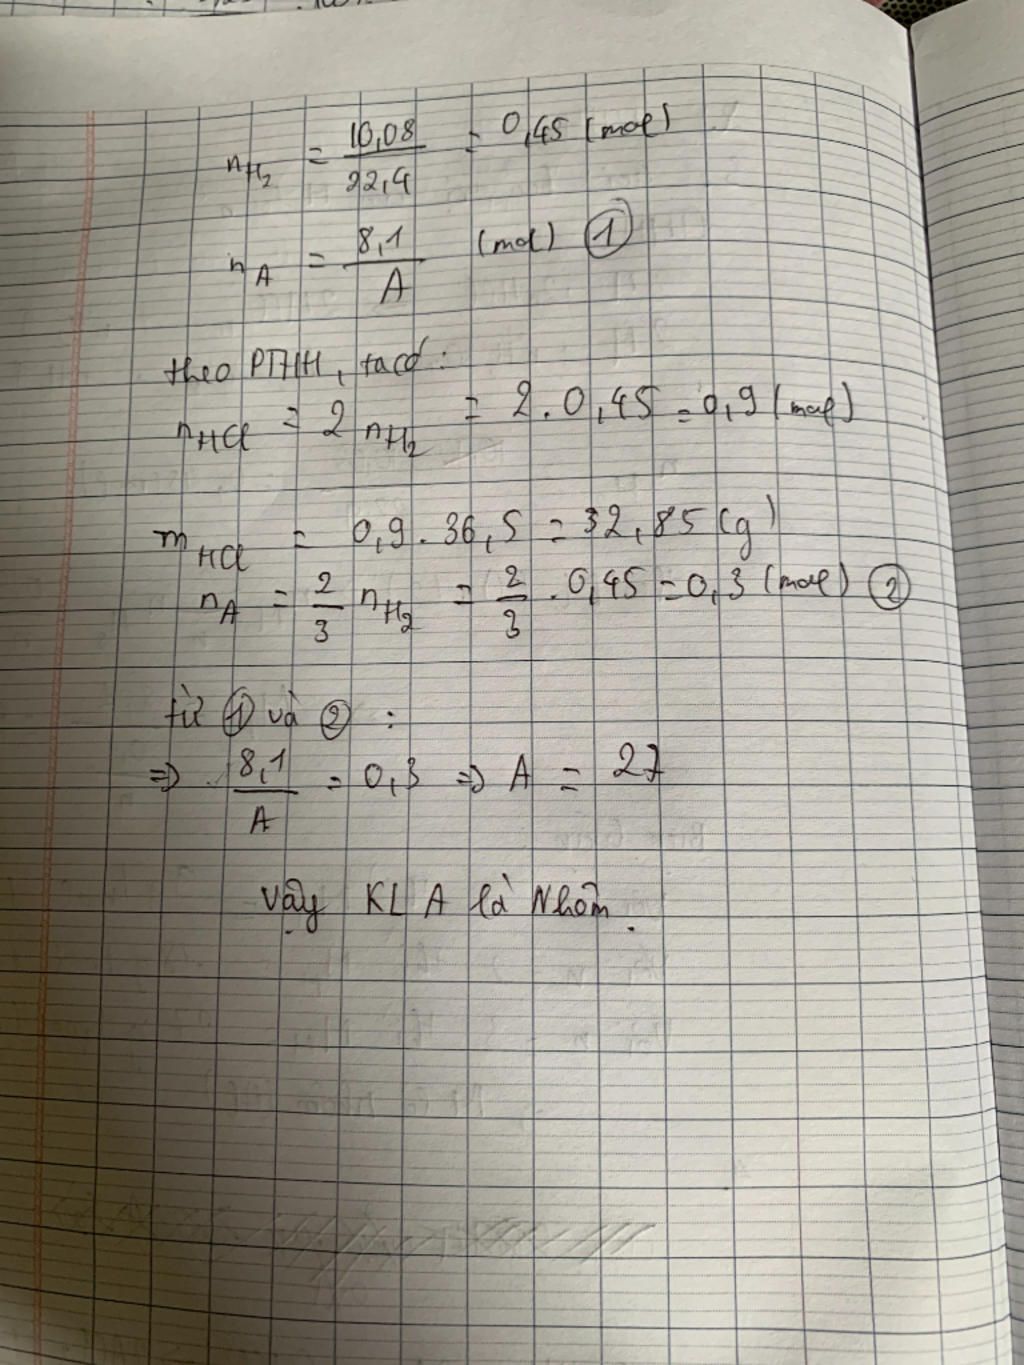 nH₂ = 10,08/22,4 = 0,45 (mol)
nA = 8,1/A (mol) ①
theo PTHH, ta có:
nHCl = 2 nH₂ = 2.0,45 = 0,9 (mol)
mHCl = 0,9.36,5 = 32,85 (g)
nA = 2/3 nH₂ = 2/3 . 0,45 = 0,3 (mol) ②
từ ① và ② :
=> 8,1/A = 0,3 => A = 27
Vậy KL A là Nhôm.